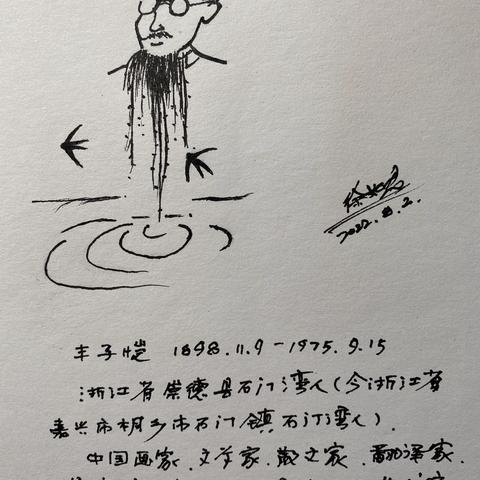 2022.8.2.
丰子恺 1898.11.9-1975.9.15
浙江省崇德县石门湾人(今浙江省
嘉兴市桐乡市石门镇石门湾人).
中国画家.文学家.散文家.翻译家.